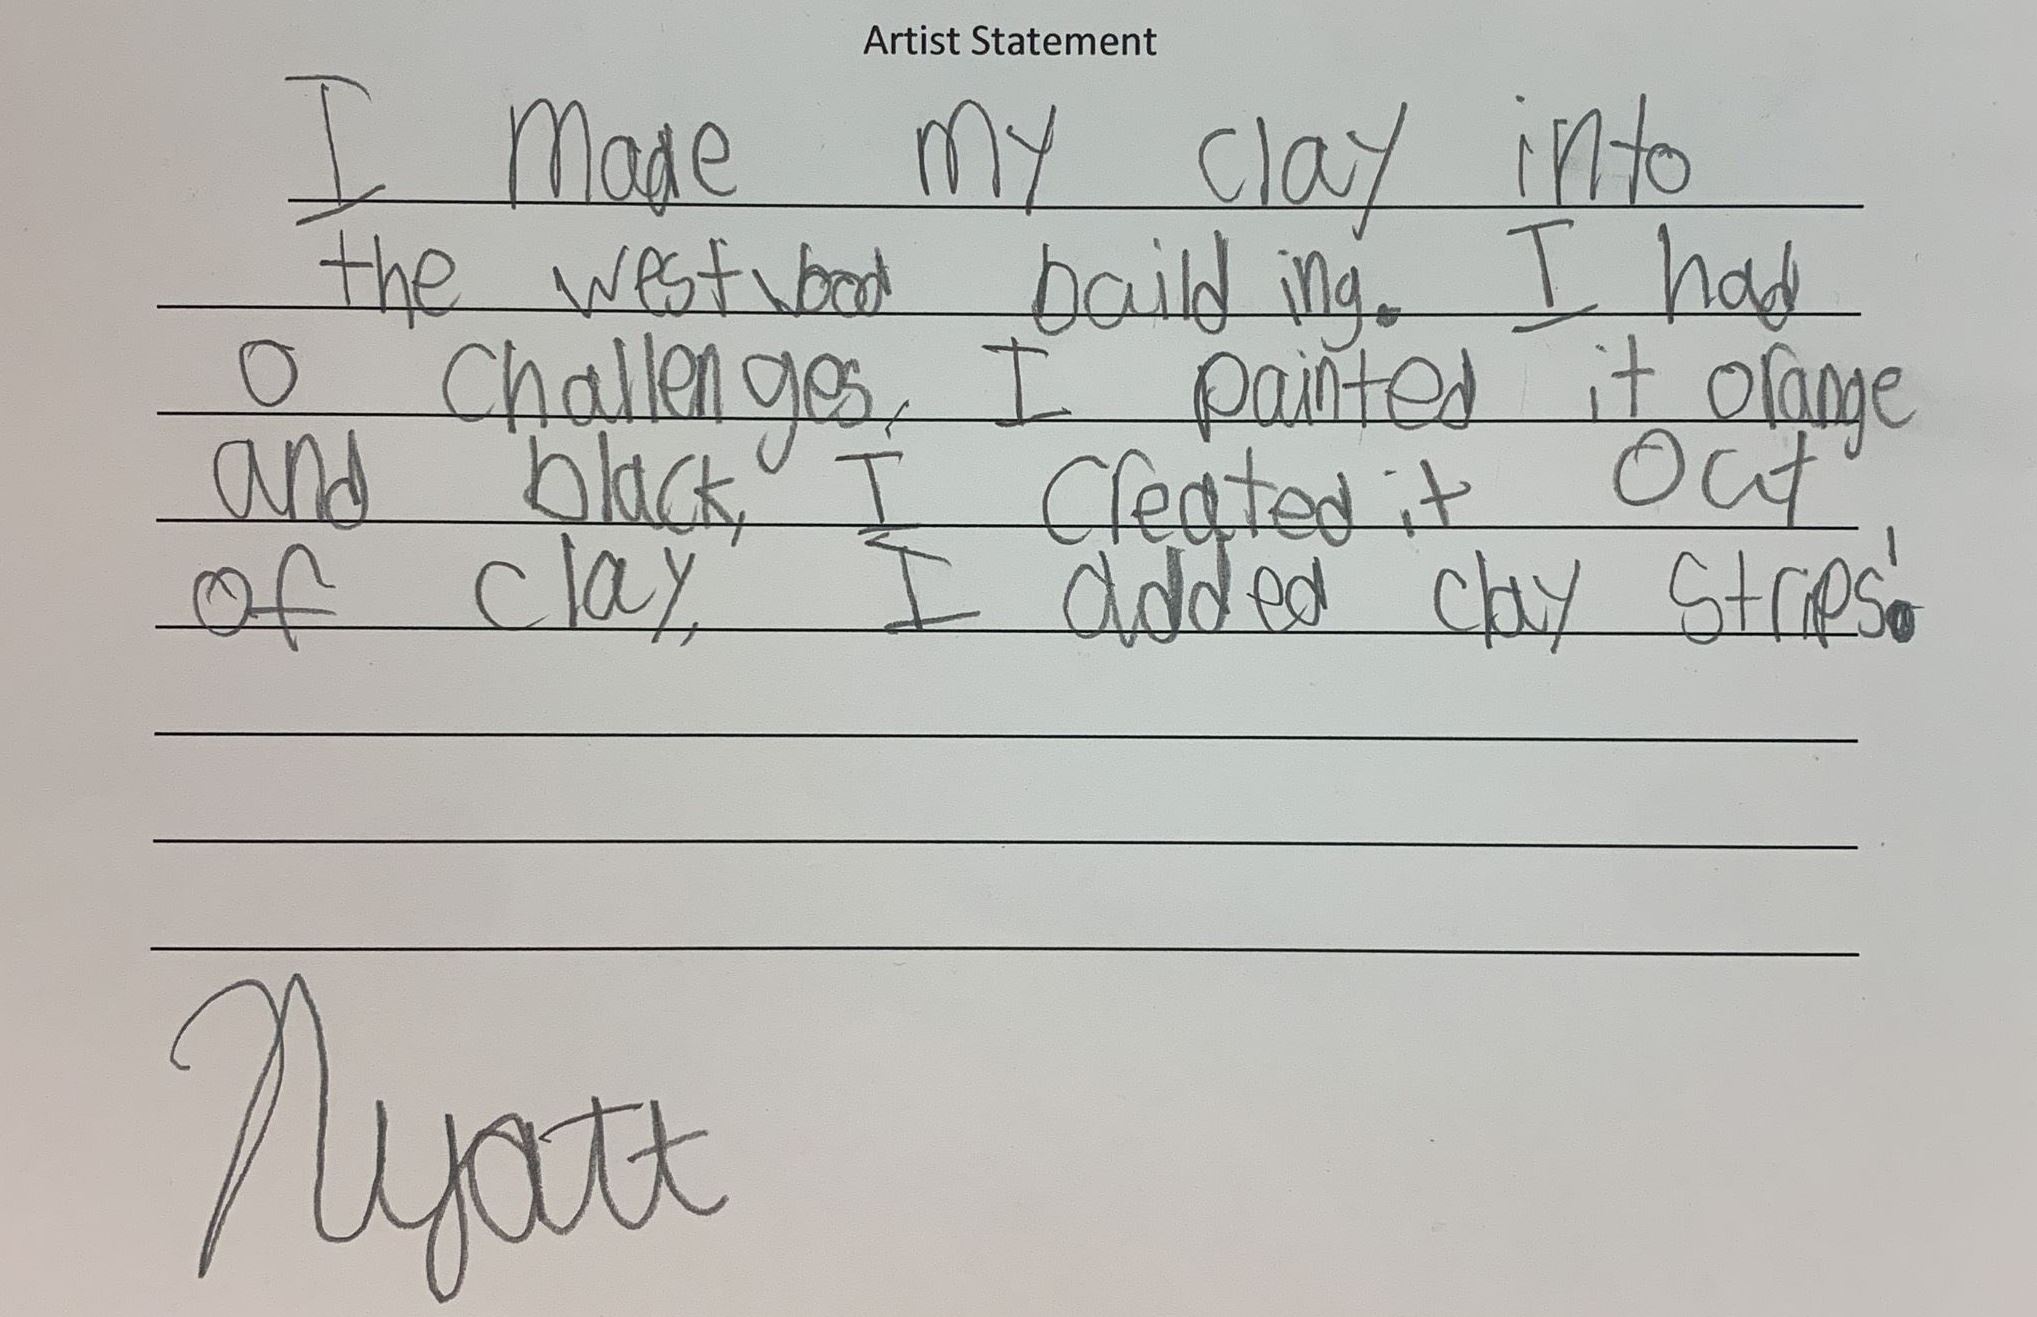 Artist Statement
I made my clay into
the westwood building. I had
0 challenges, I painted it orange
and black, I created it out
of clay, I added clay strips!
Wyatt